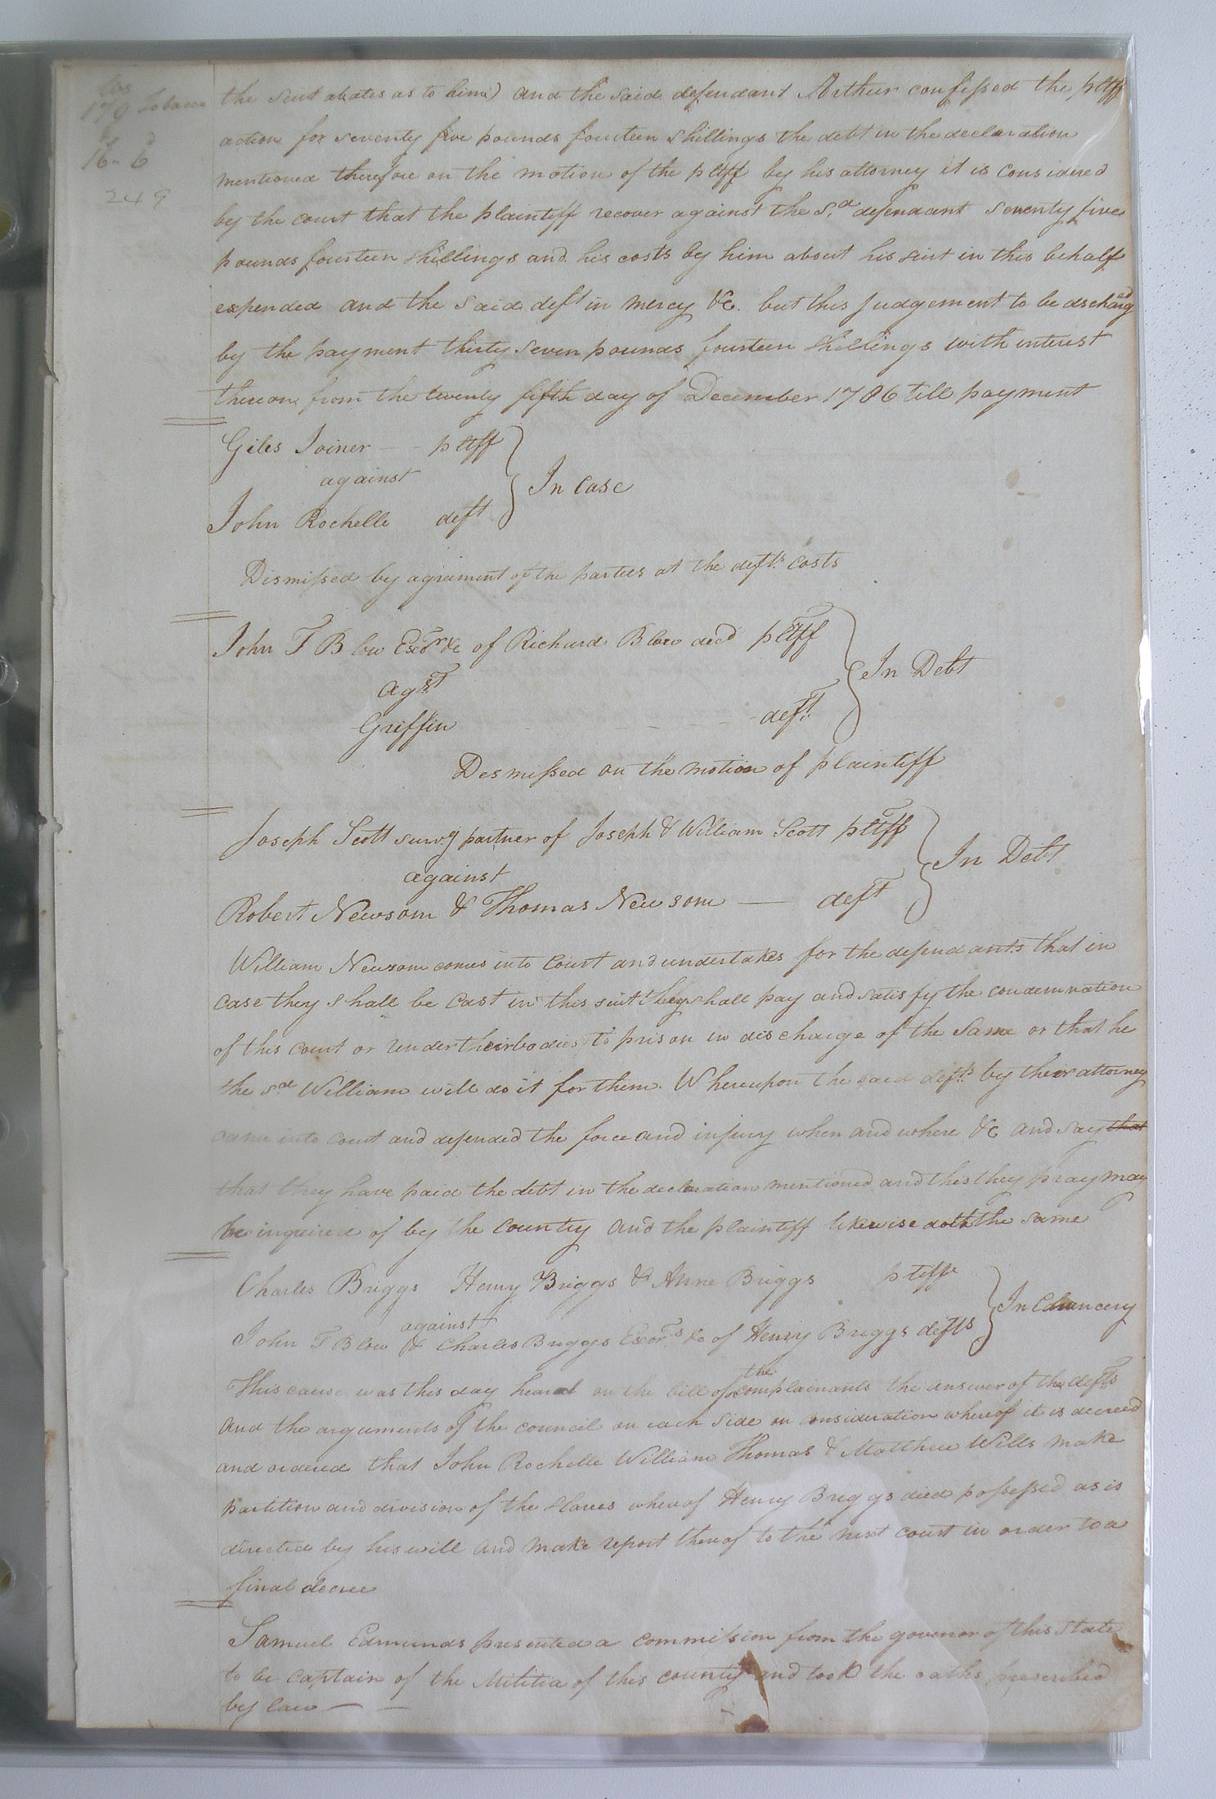 lbs
179 tobacco
16 - 6
249
the suit abates as to him) and the said defendant Arthur confessed the pltffs
action for seventy five pounds fourteen shillings the debt in the declaration
mentioned therefore on the motion of the pltff by his attorney it is considered
by the court that the plaintiff recover against the sd defendant seventy five
pounds fourteen shillings and his costs by him about his suit in this behalf
expended and the said deft in mercy &c. but this judgement to be discharged
by the payment thirty seven pounds fourteen shillings with interest
thereon from the twenty fifth day of December 1786 till payment
Giles Joiner - - pltff
against
In Case
John Rochelle deft
Dismissed by agrament of the parties at the defts costs
John T Blow Exor &c of Richard Blow decd pltff
agst
In Debt
Griffin - - - deft
Desmissed on the motion of plaintiff
Joseph Scott survg partner of Joseph & William Scott pltff
against
In Debt
Robert Newsom & Thomas Newsom — deft
William Newsom comes into Court and undertakes for the defendants that in
case they shall be cast in this suit they shall pay and satisfy the condemnation
of this court or render their bodies to prison in discharge of the same or that he
the sd William will do it for them. Whereupon the said defts by their attorney
came into court and defended the force and injury when and where &c and say that
that they have paid the debt in the declaration mentioned and this they pray may
be inquired of by the country and the plaintiff likewise doth the same
Charles Briggs Henry Briggs & Anne Briggs pltffs
against
In Chancery
John T Blow & Charles Briggs Exors &c of Henry Briggs defts
This cause was this day heard on the bill of the complainants the answer of the defts
and the arguments of the council on each side on consideration whereof it is decreed
and ordered that John Rochelle William Thomas & Matthew Wills make
partition and division of the slaves whereof Henry Briggs died possessed as is
directed by his will and make report thereof to the next court in order to a
final decree
Samuel Edmunds presented a commission from the govenor of this State
to be captain of the Militia of this county and took the oaths prescribed
by law — —